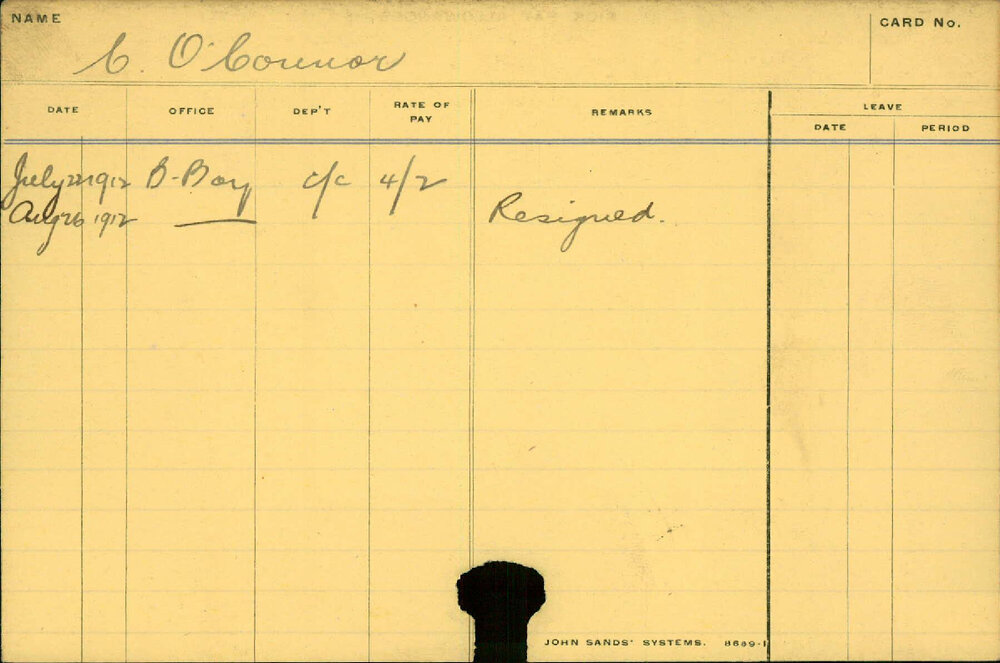 NAME
CARD No.
C. O'Connor
DATE OFFICE DEP'T RATE OF PAY REMARKS LEAVE
DATE PERIOD
July 22 1912 B-Boy c/c 4/2
Aug 26 1912 — Resigned.
JOHN SANDS' SYSTEMS. 8689-1